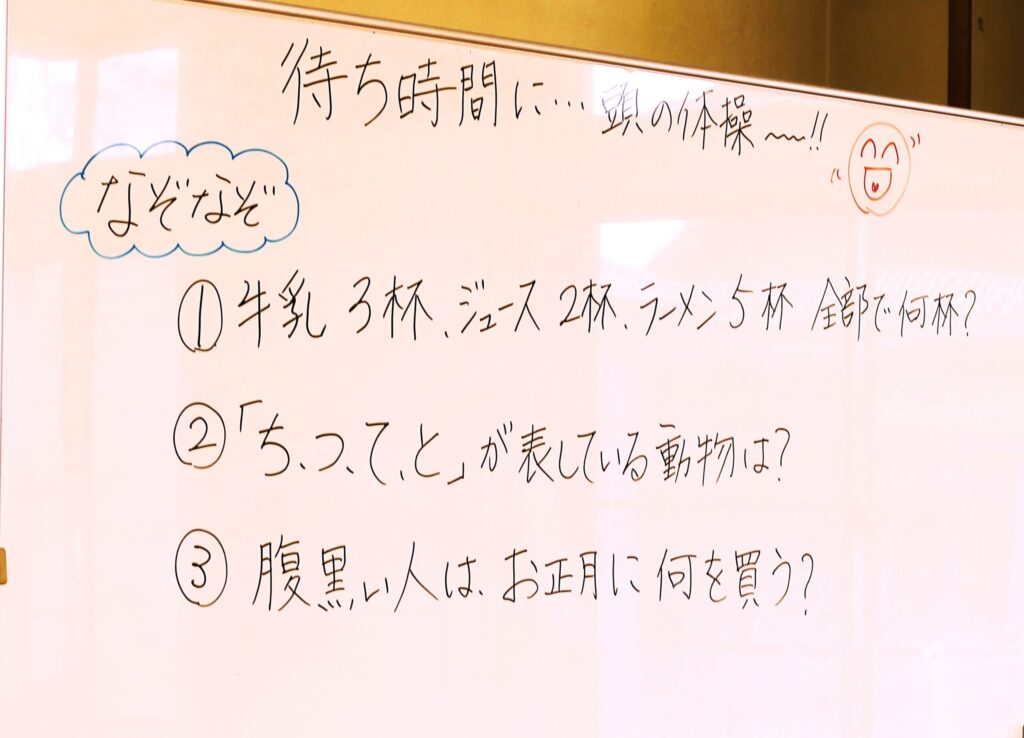 待ち時間に…頭の体操〜!!
なぞなぞ
①牛乳 3杯、ジュース 2杯、ラーメン 5杯 全部で何杯?
②「ち、つ、て、と」が表している動物は?
③腹黒い人は、お正月に何を買う?